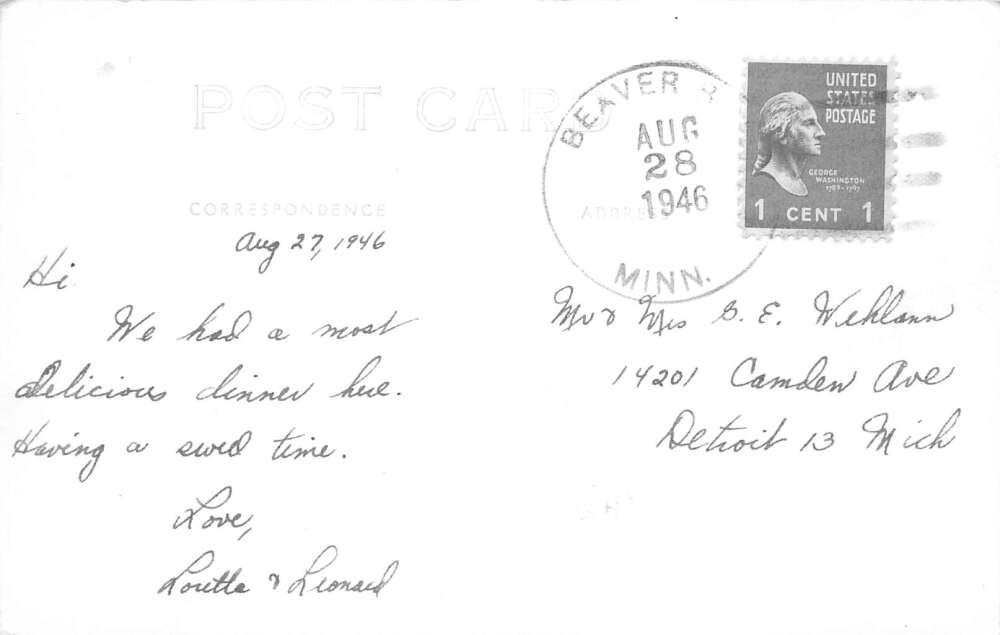 POST CARD
BEAVER
AUG
28
1946
MINN.
UNITED
STATES
POSTAGE
GEORGE
WASHINGTON
1789-1797
1 CENT 1
CORRESPONDENCE
ADDRESS
Aug 27, 1946
Hi
We had a most
delicious dinner here.
Having a swell time.
Love,
Loretta & Leonard
Mr & Mrs G. E. Wehlann
14201 Camden Ave
Detroit 13 Mich